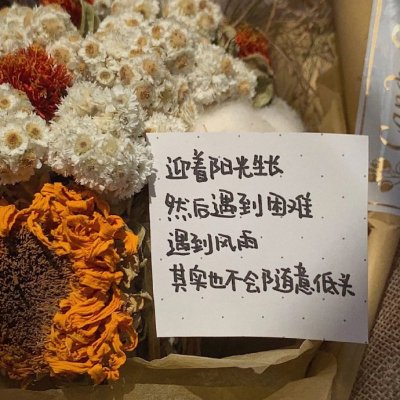 迎着阳光生长
然后遇到困难
遇到风雨
其实也不会随意低头